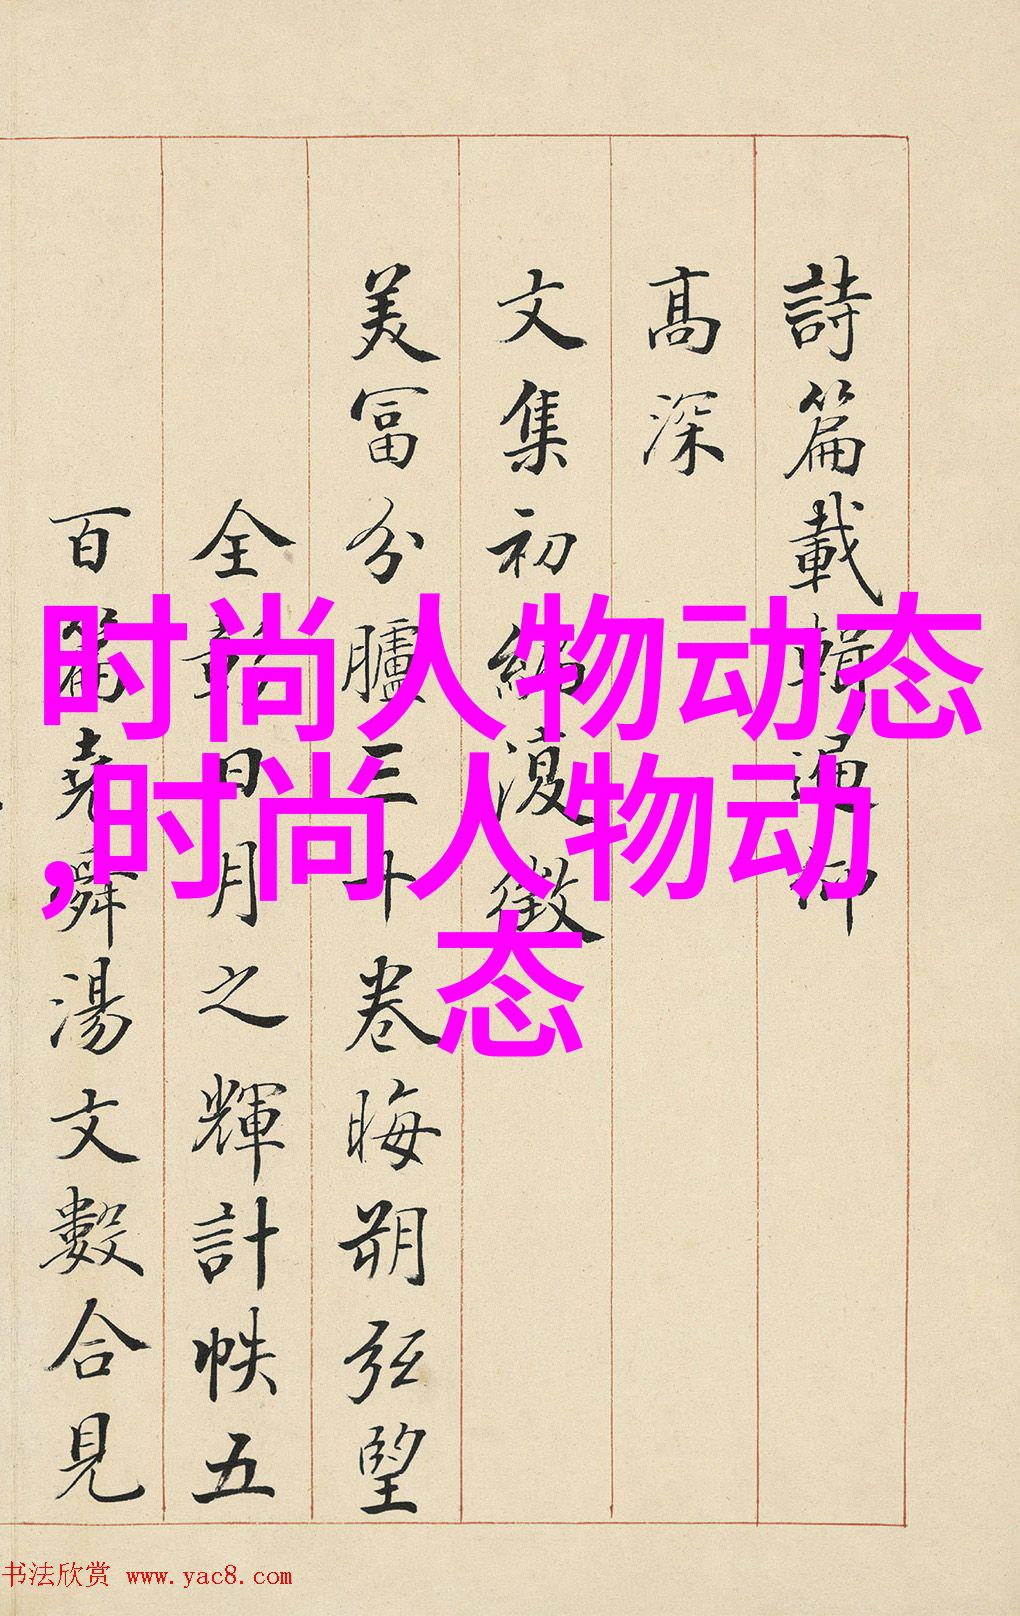 詩篇載輯遍仰
高深
文集初編復徵
美富分臚三十卷晦朔弦望
全彰日月之輝計帙五
百篇堯舜湯文數合見
时尚人物动态
,时尚人物动
态
书法欣赏 www.yac8.com